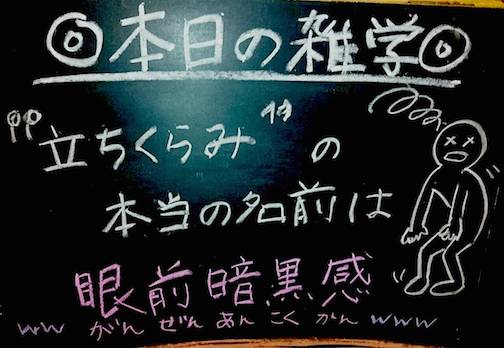 ◎本日の雑学◎
"立ちくらみ"の
本当の名前は
眼前暗黒感
ww がん ぜん あん こく かん www